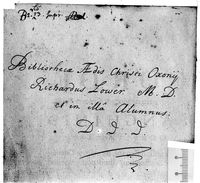 Bibliothecæ Ædis Christi Oxonij
Richardus Lower M. D.
et in illâ Alumnus.
D. D. D.